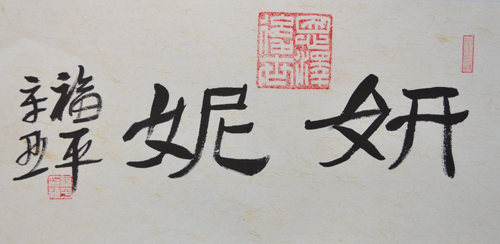 妍妮
福平
辛丑